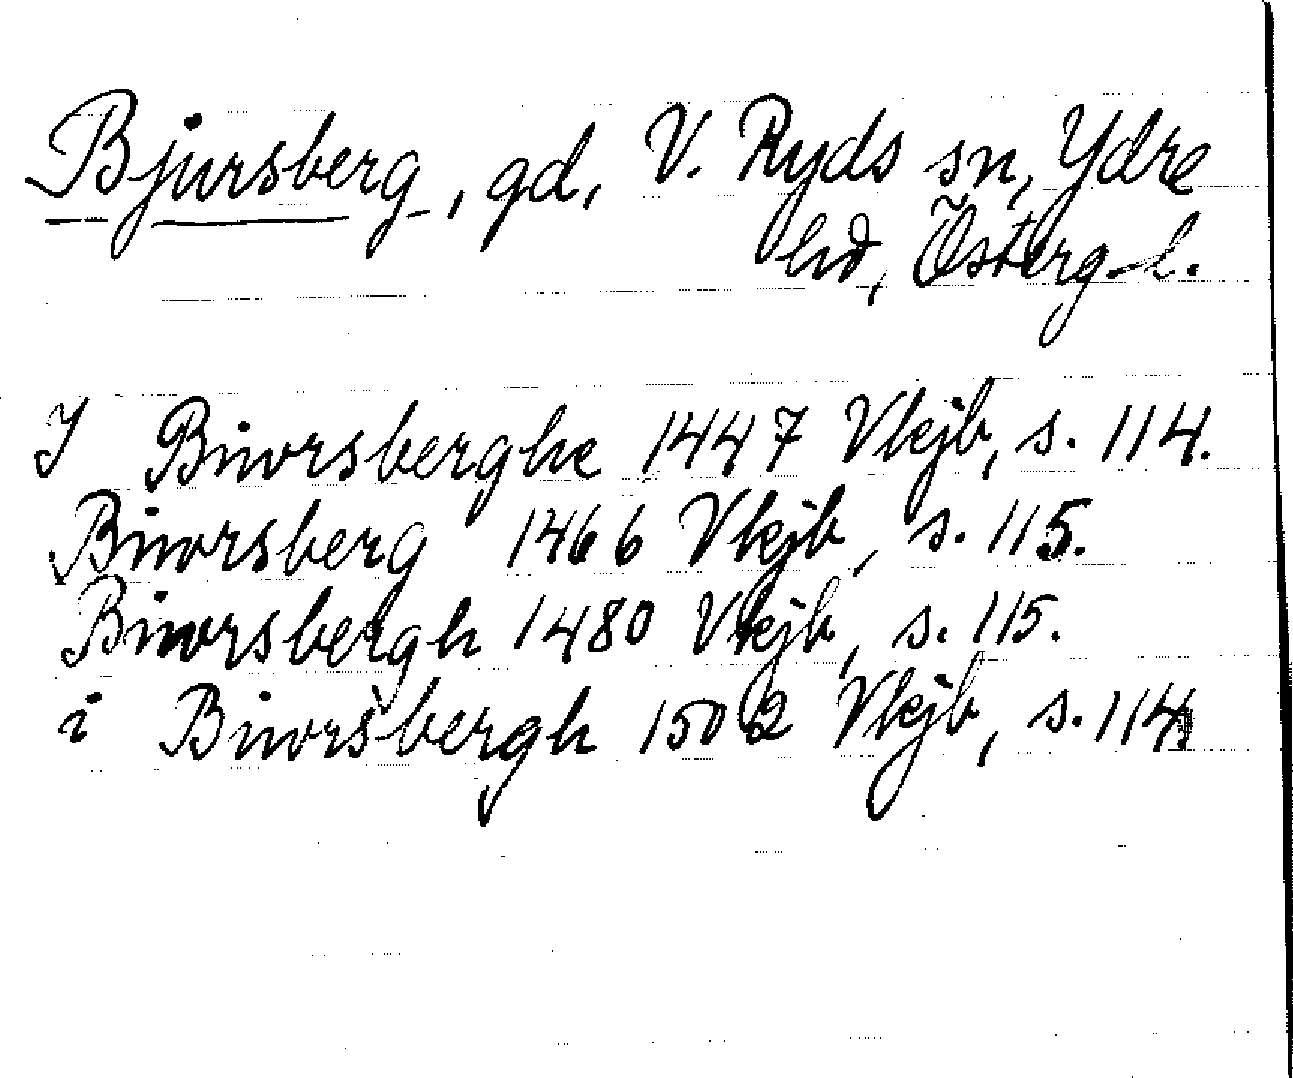 Bjursberg, gd, V. Ryds sn, Ydre
hd, Österg. l.
I Biworsberghe 1447 Vkjb, s. 114.
Biworsberg 1466 Vkjb, s. 115.
Biworsbergh 1480 Vkjb, s. 115.
i Biworsbergh 1502 Vkjb, s. 114